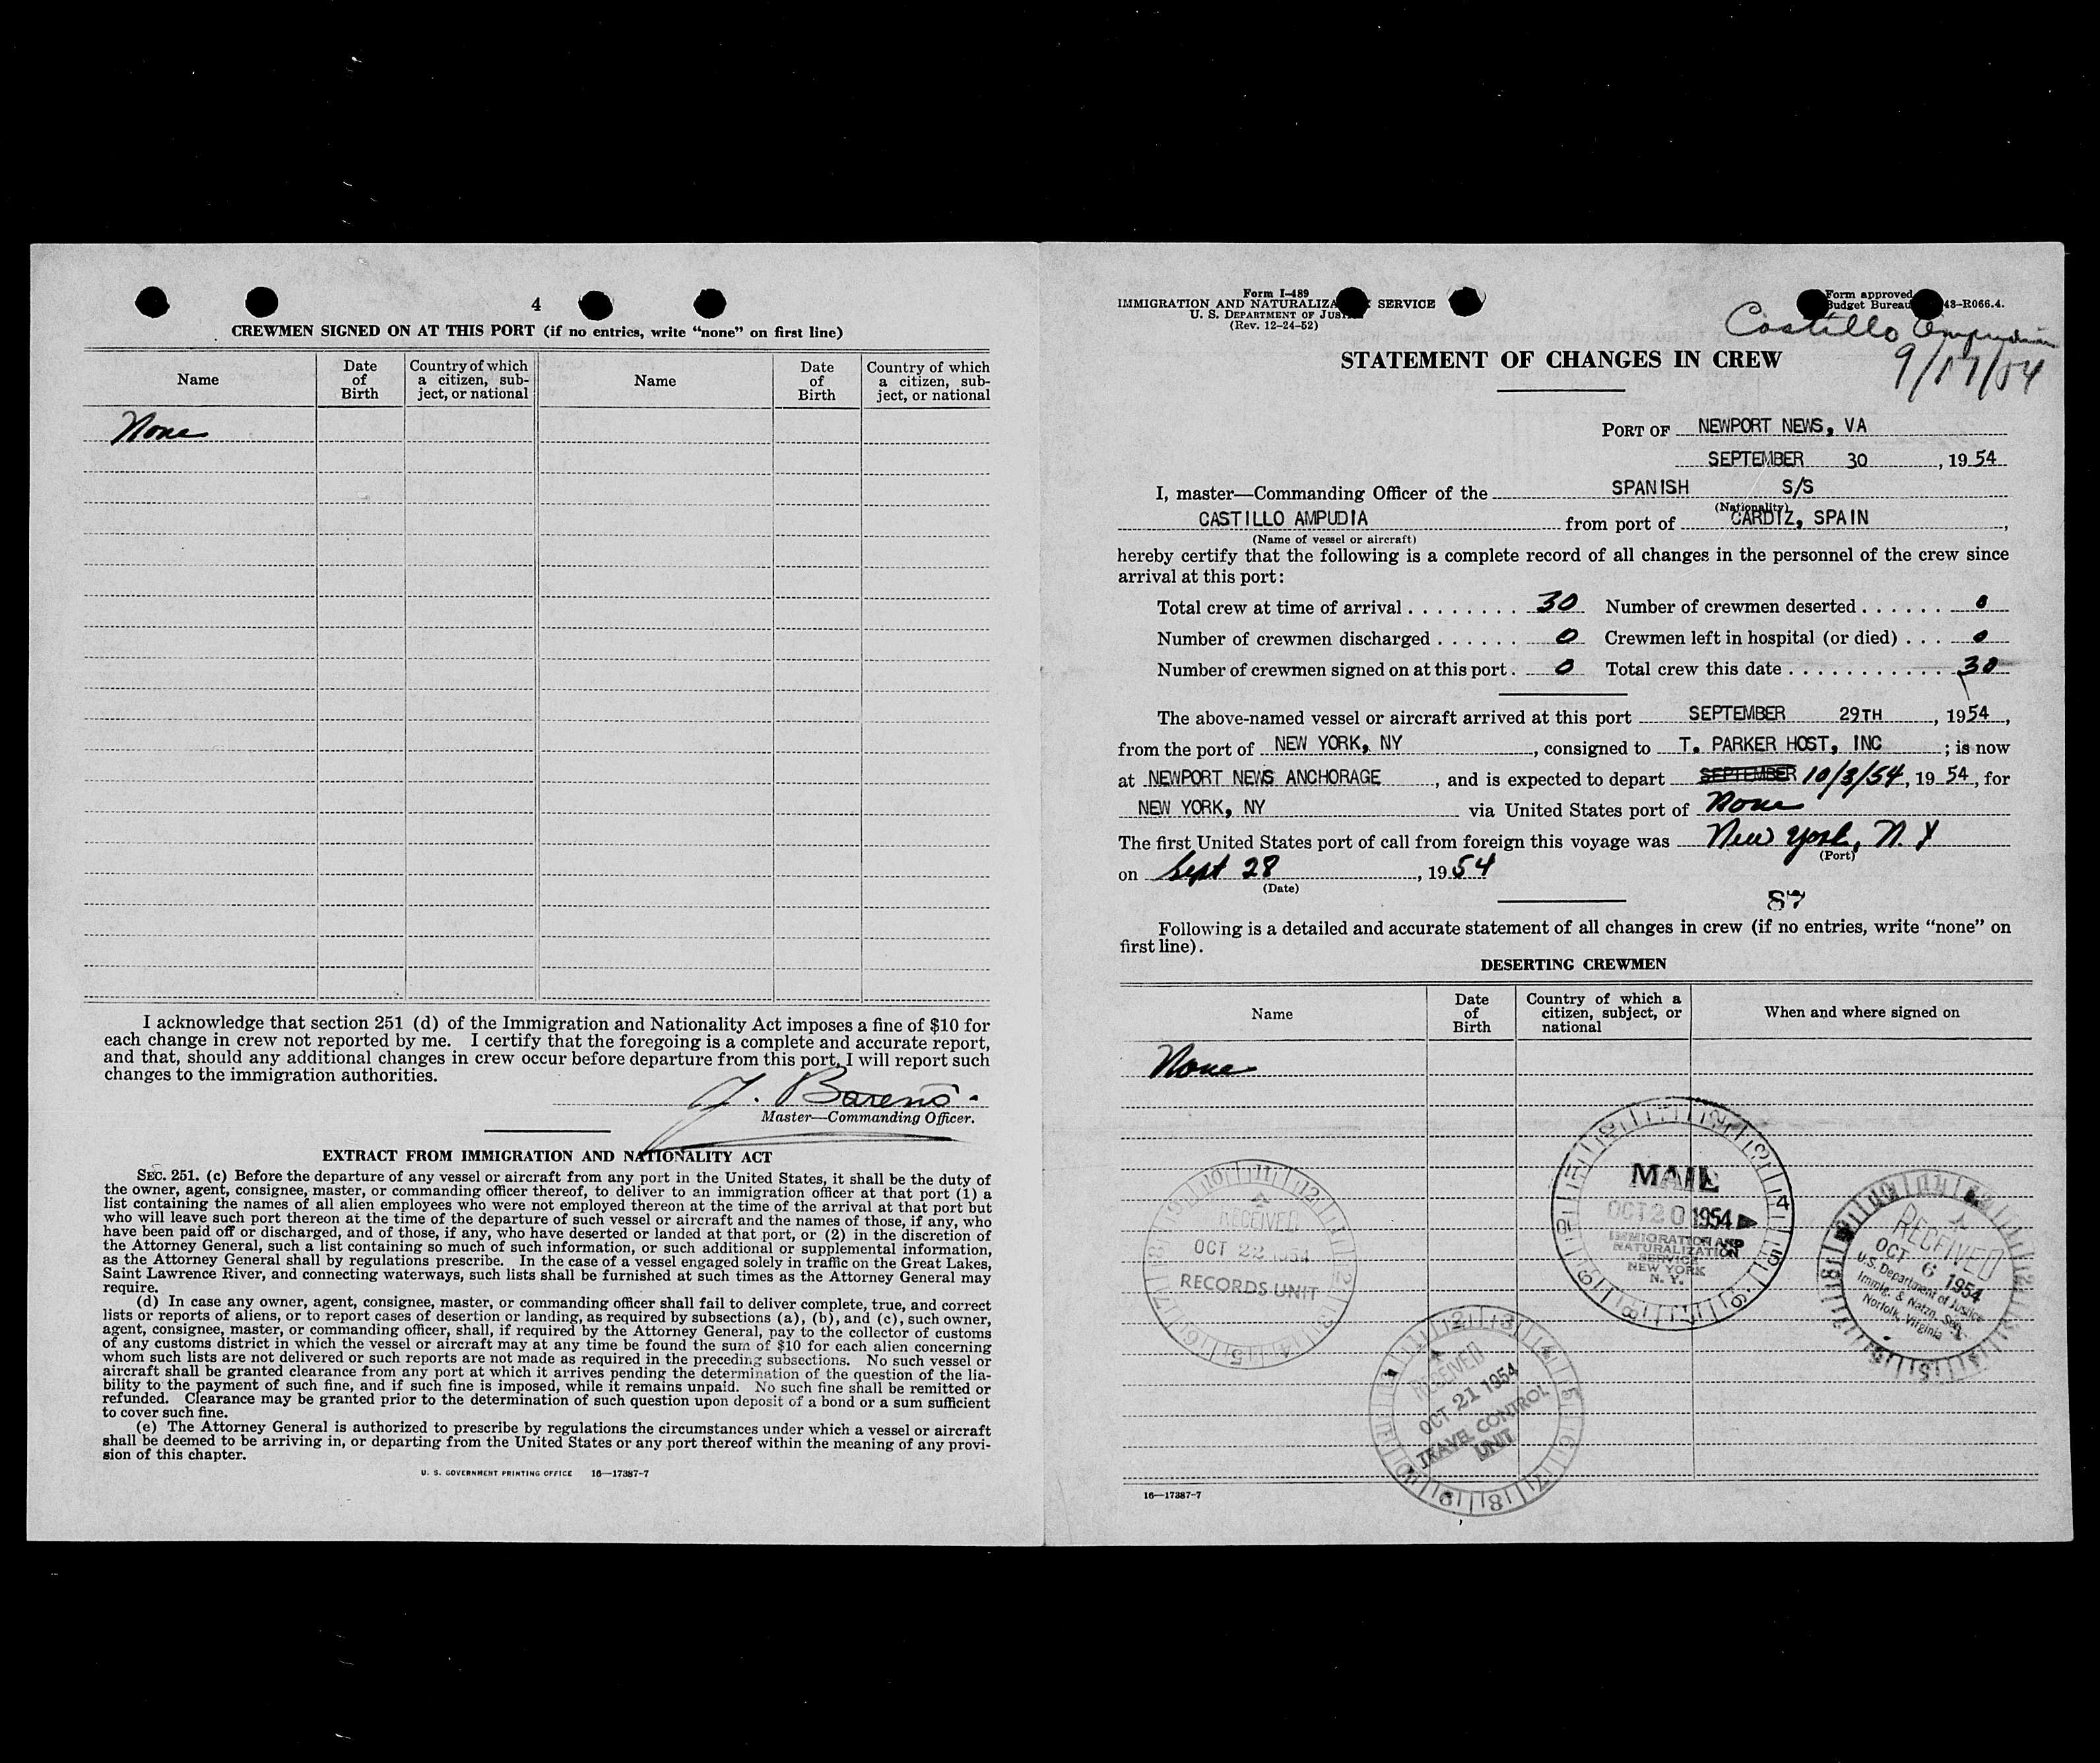 4
CREWMEN SIGNED ON AT THIS PORT (if no entries, write “none” on first line)
Name
Date of Birth
Country of which a citizen, sub-ject, or national
Name
Date of Birth
Country of which a citizen, sub-ject, or national
None
I acknowledge that section 251 (d) of the Immigration and Nationality Act imposes a fine of $10 for
each change in crew not reported by me. I certify that the foregoing is a complete and accurate report,
and that, should any additional changes in crew occur before departure from this port, I will report such
changes to the immigration authorities.
Master—Commanding Officer.
EXTRACT FROM IMMIGRATION AND NATIONALITY ACT
SEC. 251. (c) Before the departure of any vessel or aircraft from any port in the United States, it shall be the duty of
the owner, agent, consignee, master, or commanding officer thereof, to deliver to an immigration officer at that port (1) a
list containing the names of all alien employees who were not employed thereon at the time of the arrival at that port but
who will leave such port thereon at the time of the departure of such vessel or aircraft and the names of those, if any, who
have been paid off or discharged, and of those, if any, who have deserted or landed at that port, or (2) in the discretion of
the Attorney General, such a list containing so much of such information, or such additional or supplemental information,
as the Attorney General shall by regulations prescribe. In the case of a vessel engaged solely in traffic on the Great Lakes,
Saint Lawrence River, and connecting waterways, such lists shall be furnished at such times as the Attorney General may
require.
(d) In case any owner, agent, consignee, master, or commanding officer shall fail to deliver complete, true, and correct
lists or reports of aliens, or to report cases of desertion or landing, as required by subsections (a), (b), and (c), such owner,
agent, consignee, master, or commanding officer, shall, if required by the Attorney General, pay to the collector of customs
of any customs district in which the vessel or aircraft may at any time be found the sum of $10 for each alien concerning
whom such lists are not delivered or such reports are not made as required in the preceding subsections. No such vessel or
aircraft shall be granted clearance from any port at which it arrives pending the determination of the question of the lia-
bility to the payment of such fine, and if such fine is imposed, while it remains unpaid. No such fine shall be remitted or
refunded. Clearance may be granted prior to the determination of such question upon deposit of a bond or a sum sufficient
to cover such fine.
(e) The Attorney General is authorized to prescribe by regulations the circumstances under which a vessel or aircraft
shall be deemed to be arriving in, or departing from the United States or any port thereof within the meaning of any provi-
sion of this chapter.
U. S. GOVERNMENT PRINTING OFFICE 16—17387-7
Form I-489
IMMIGRATION AND SERVICE
U. S. DEPARTMENT OF
(Rev. 12-24-52)
Form approved
Budget Bureau 43-R066.4.
Castillo Ampudia
9/17/54
STATEMENT OF CHANGES IN CREW
PORT OF NEWPORT NEWS, VA
SEPTEMBER 30, 1954
I, master—Commanding Officer of the SPANISH S/S
(Nationality)
CASTILLO AMPUDIA from port of CARDIZ, SPAIN,
(Name of vessel or aircraft)
hereby certify that the following is a complete record of all changes in the personnel of the crew since
arrival at this port:
Total crew at time of arrival . . . . . . . . 30 Number of crewmen deserted . . . . . . 0
Number of crewmen discharged . . . . . . 0 Crewmen left in hospital (or died) . . . 0
Number of crewmen signed on at this port . 0 Total crew this date . . . . . . . . . . . . 30
The above-named vessel or aircraft arrived at this port SEPTEMBER 29TH, 1954,
from the port of NEW YORK, NY, consigned to T. PARKER HOST, INC; is now
at NEWPORT NEWS ANCHORAGE, and is expected to depart SEPTEMBER 10/3/54, 1954, for
NEW YORK, NY via United States port of None
The first United States port of call from foreign this voyage was New York, N. Y
(Port)
on Sept 28, 1954
(Date)
87
Following is a detailed and accurate statement of all changes in crew (if no entries, write “none” on
first line).
DESERTING CREWMEN
Name
Date of Birth
Country of which a citizen, subject, or national
When and where signed on
None
MAIL
OCT 20 1954
IMMIGRATION AND
NATURALIZATION
SERVICE
NEW YORK
N. Y.
RECEIVED
OCT 22 1954
RECORDS UNIT
RECEIVED
OCT 6 1954
U.S. Department of Justice
Immig. & Natzn. Ser.
Norfolk, Virginia
RECEIVED
OCT 21 1954
TRAVEL CONTROL
UNIT
16—17387-7